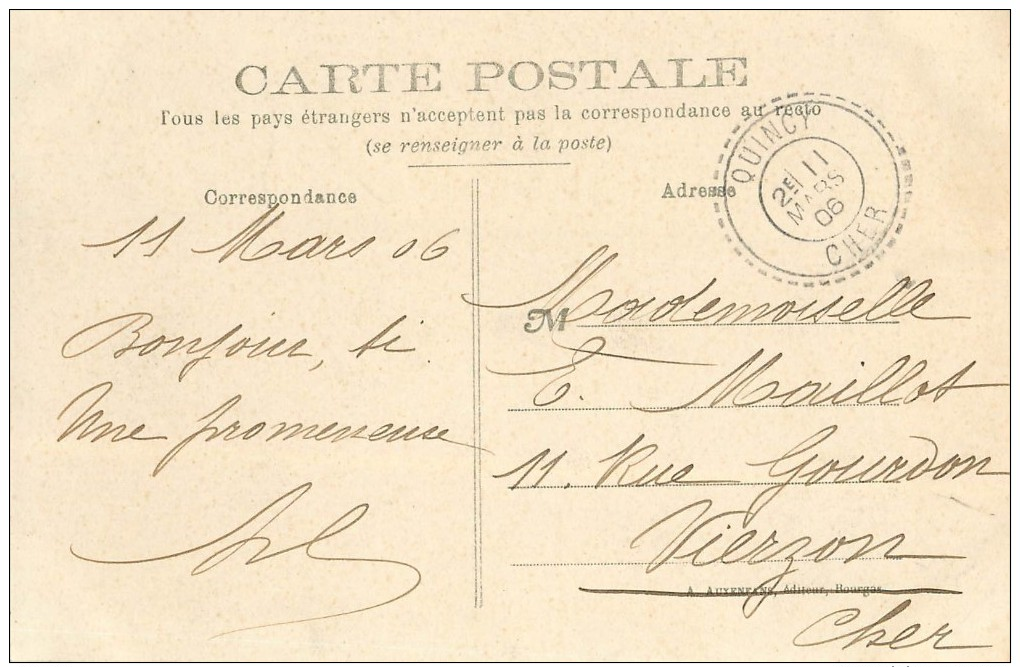 CARTE POSTALE
Tous les pays étrangers n'acceptent pas la correspondance au recto
(se renseigner à la poste)
Correspondance
Adresse
QUINCY
2E 11
MARS
06
CHER
11 Mars 06
Bonjour,
Une promeneuse
M
Mademoiselle
E. Maillot
11. Rue Gourdon
Vierzon
A. AUXENFANS, éditeur, Bourges
Cher